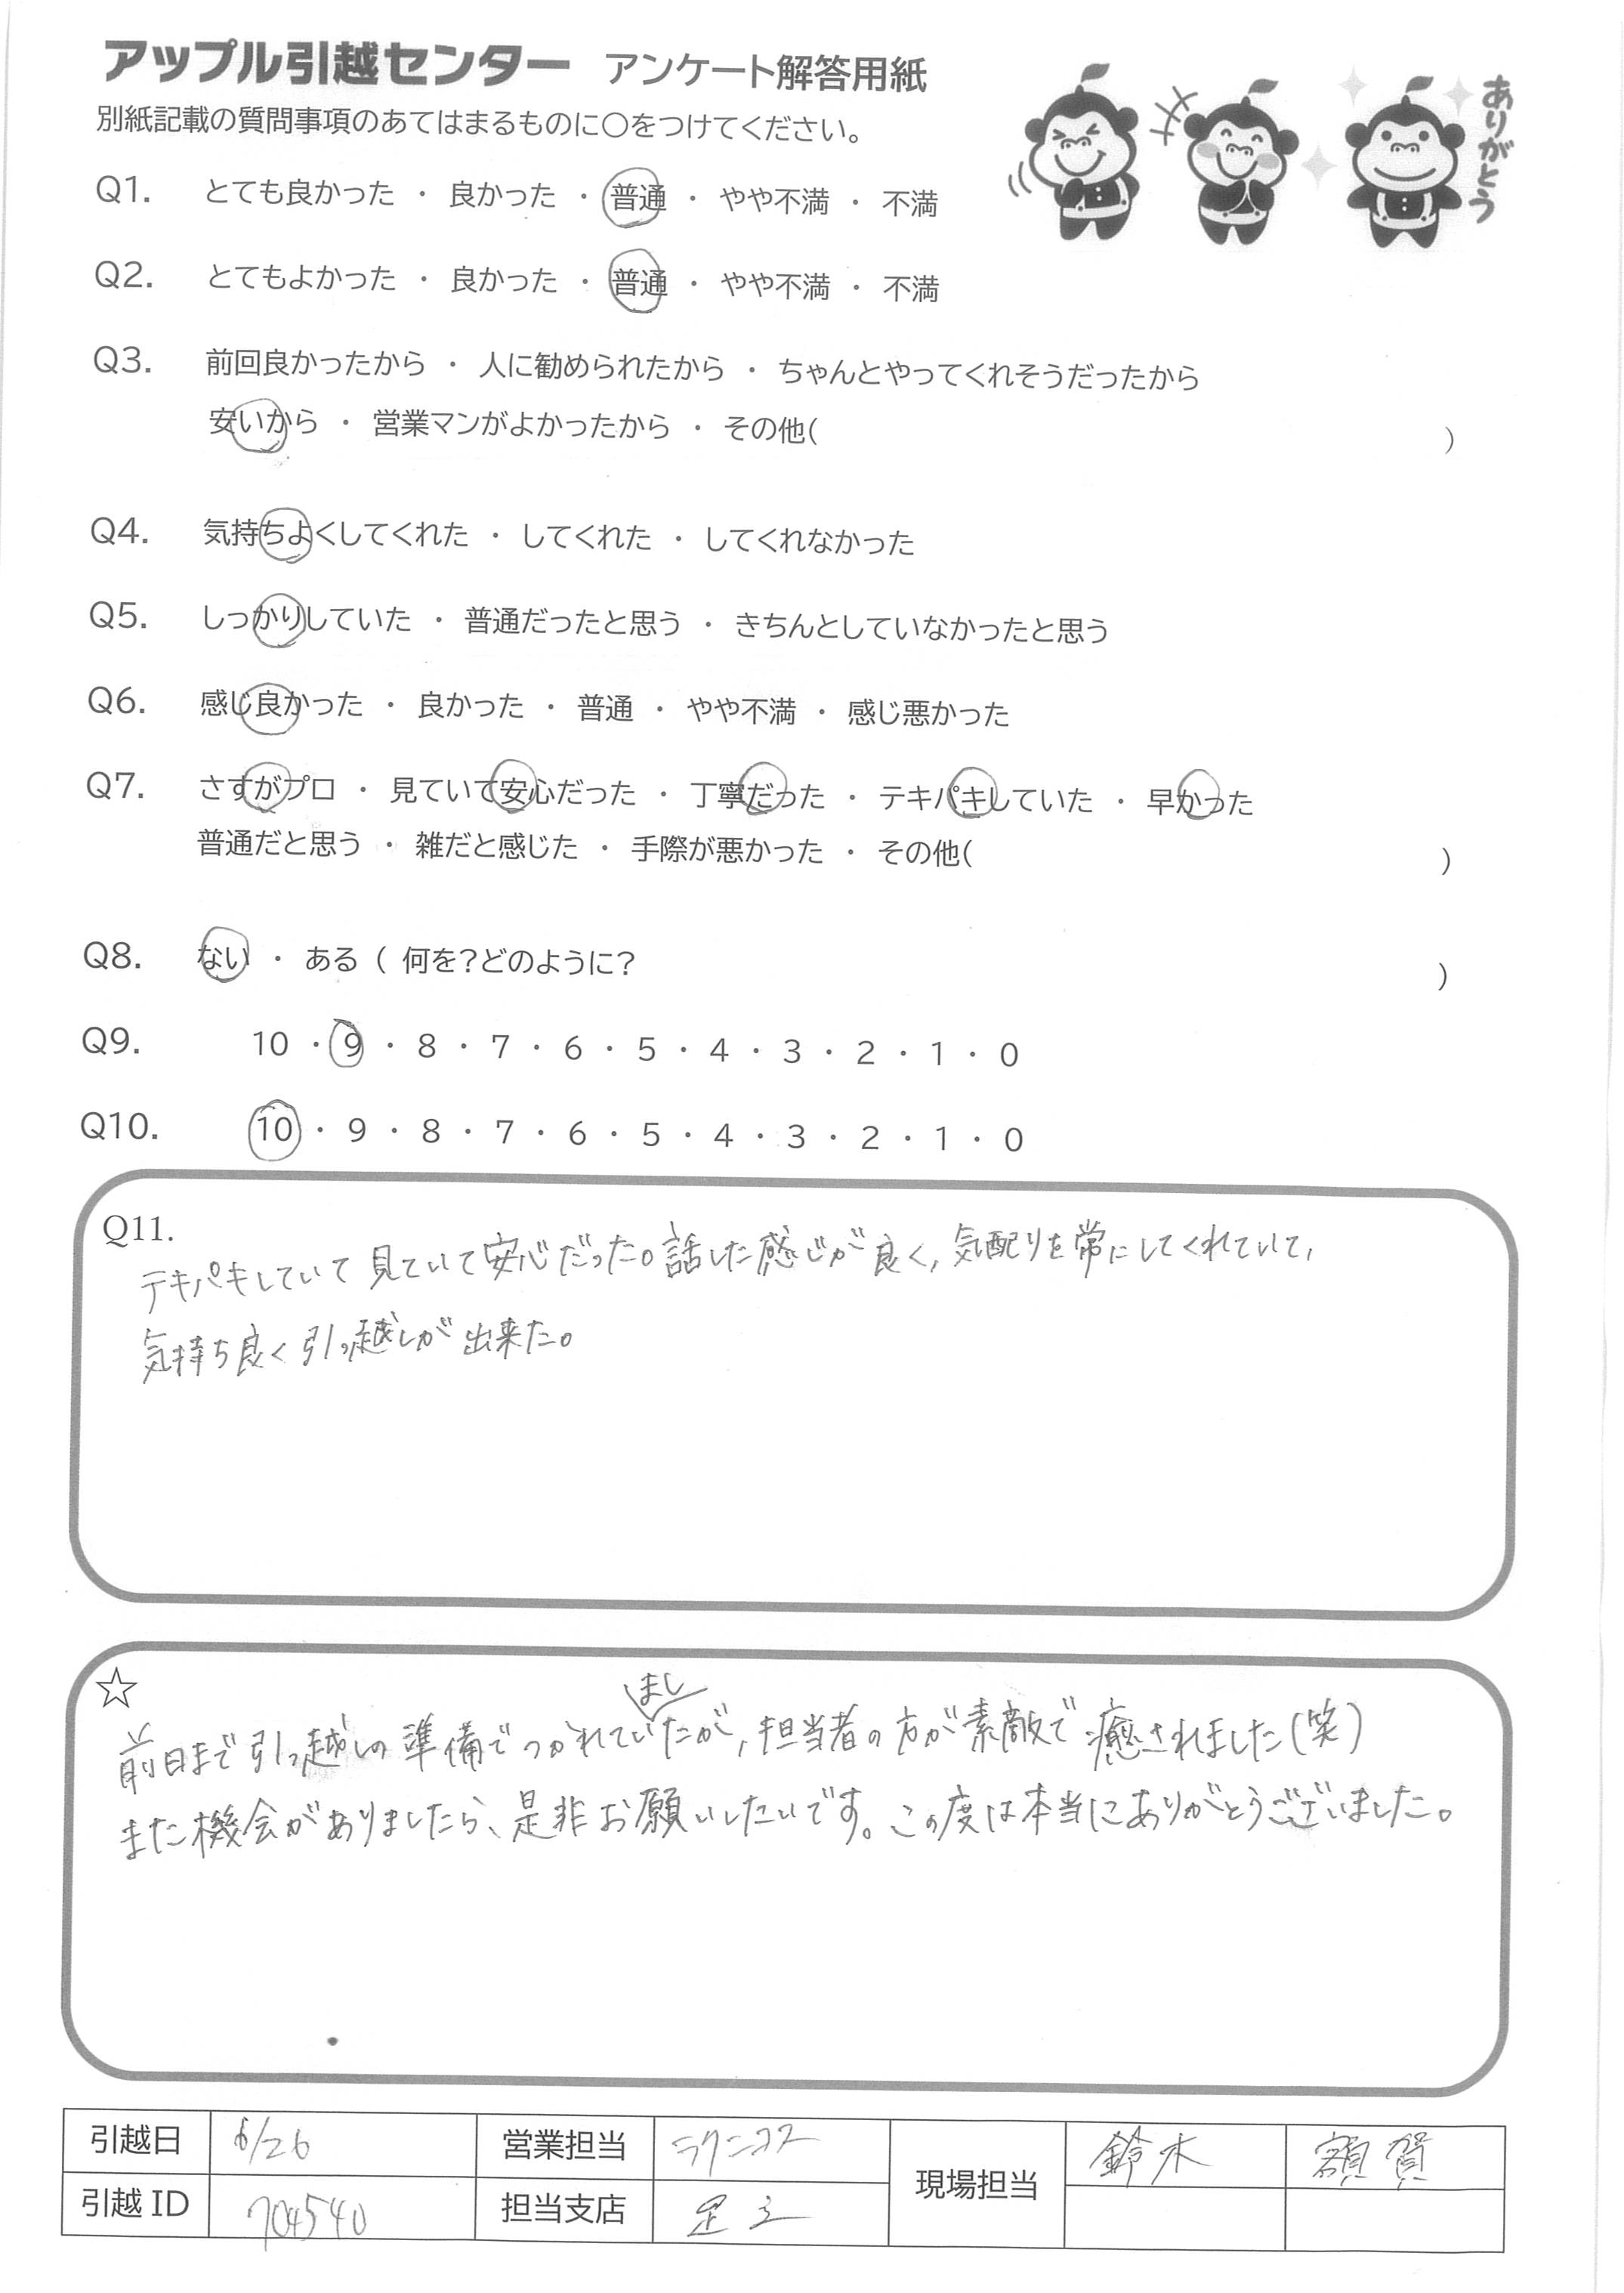 アップル引越センター アンケート解答用紙
別紙記載の質問事項のあてはまるものに○をつけてください。
ありがとう
Q1. とても良かった ・ 良かった ・ 普通 ・ やや不満 ・ 不満
Q2. とてもよかった ・ 良かった ・ 普通 ・ やや不満 ・ 不満
Q3. 前回良かったから ・ 人に勧められたから ・ ちゃんとやってくれそうだったから
安いから ・ 営業マンがよかったから ・ その他( )
Q4. 気持ちよくしてくれた ・ してくれた ・ してくれなかった
Q5. しっかりしていた ・ 普通だったと思う ・ きちんとしていなかったと思う
Q6. 感じ良かった ・ 良かった ・ 普通 ・ やや不満 ・ 感じ悪かった
Q7. さすがプロ ・ 見ていて安心だった ・ 丁寧だった ・ テキパキしていた ・ 早かった
普通だと思う ・ 雑だと感じた ・ 手際が悪かった ・ その他( )
Q8. ない ・ ある ( 何を?どのように? )
Q9. 10 ・ 9 ・ 8 ・ 7 ・ 6 ・ 5 ・ 4 ・ 3 ・ 2 ・ 1 ・ 0
Q10. 10 ・ 9 ・ 8 ・ 7 ・ 6 ・ 5 ・ 4 ・ 3 ・ 2 ・ 1 ・ 0
Q11.
テキパキしていて見ていて安心だった。話した感じが良く、気配りを常にしてくれていて、
気持ち良く引っ越しが出来た。
☆
前日まで引っ越しの準備でつかれていましたが、担当者の方が素敵で癒されました(笑)
また機会がありましたら、是非お願いしたいです。この度は本当にありがとうございました。
引越日 6/26 営業担当 現場担当 鈴木 額賀
引越ID 704540 担当支店 足立